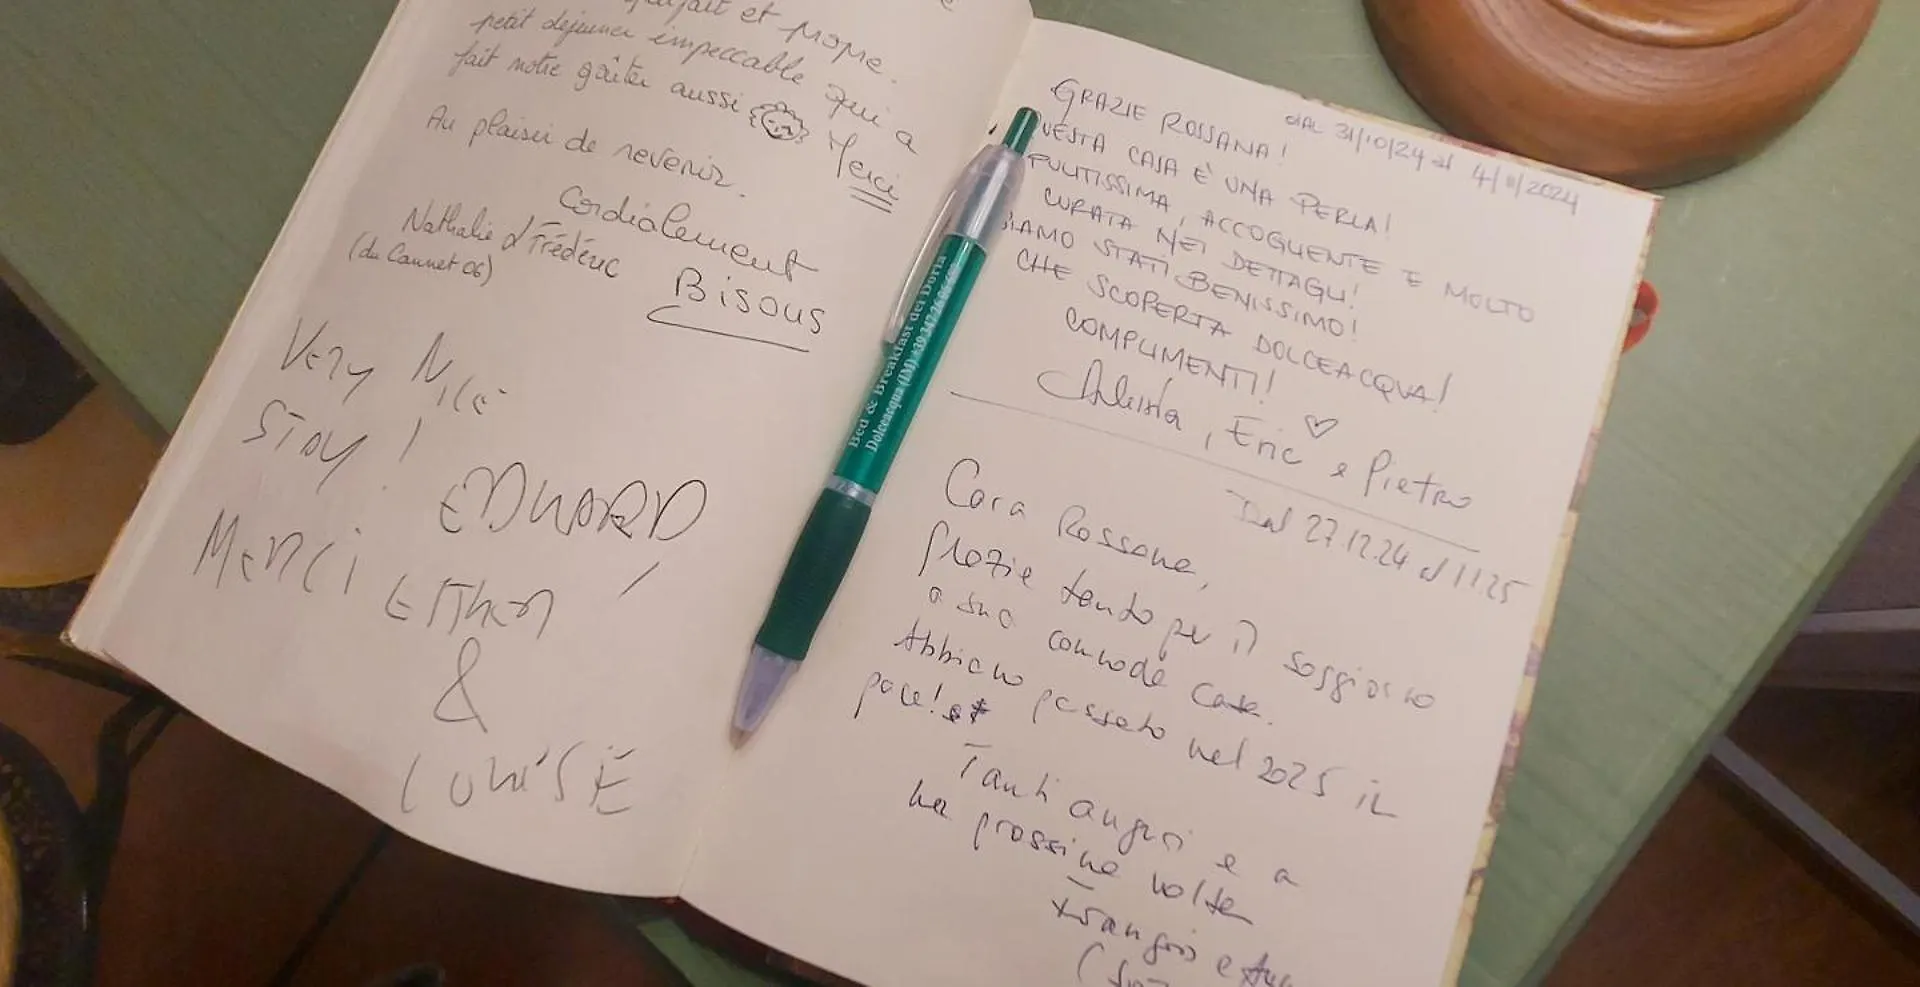 et propre.
petit déjeuner impeccable qui a
fait notre goûter aussi Merci
Au plaisir de revenir.
Cordialement
Nathalie & Frédéric
(du Cannet 06)
Bisous
Very Nice
STAY!
EDWARD
MERCI
&
GRAZIE ROSSANA!
DAL 31/10/24 al 4/11/2024
QUESTA CASA È UNA PERLA!
PULITISSIMA, ACCOGLIENTE E MOLTO
CURATA NEI DETTAGLI!
SIAMO STATI BENISSIMO!
CHE SCOPERTA DOLCEACQUA!
COMPLIMENTI!
, Eric e Pietro
Dal 27.12.24 al 1.1.25
Cara Rossana,
grazie tanto per il soggiorno
a sua comoda casa.
Abbiamo passato nel 2025 in
pace!
Tanti auguri e a
la prossima volta
Bed & Breakfast dei Doria
Dolceacqua (IM) +39